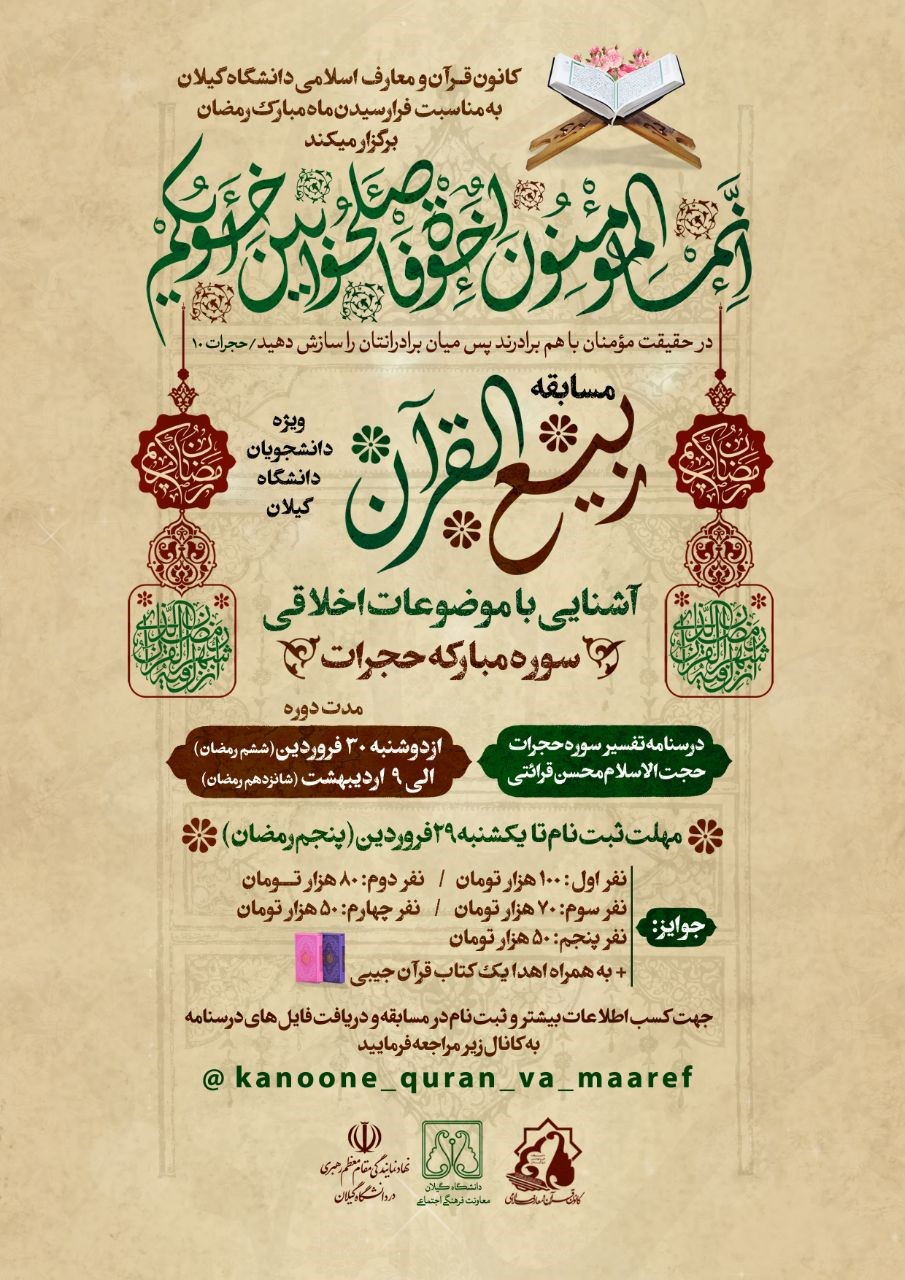 کانون قرآن و معارف اسلامی دانشگاه گیلان
به مناسبت فرارسیدن ماه مبارک رمضان
برگزار میکند
إنَّمَا المؤمِنُونَ إِخوَةٌ فَاصلِحُوا بَینَ أَخَوَیکُم
در حقیقت مؤمنان با هم برادرند پس میان برادرانتان را سازش دهید/ حجرات ۱۰
مسابقه
ربیع القرآن
ویژه
دانشجویان
دانشگاه
گیلان
رمضان کریم
رمضان کریم
شهر رمضان الذی انزل فیه القرآن
شهر رمضان الذی انزل فیه القرآن
آشنایی با موضوعات اخلاقی
سوره مبارکه حجرات
مدت دوره
درسنامه تفسیر سوره حجرات
حجت الاسلام محسن قرائتی
از دوشنبه ۳۰ فروردین (ششم رمضان)
الی ۹ اردیبهشت (شانزدهم رمضان)
مهلت ثبت نام تا یکشنبه ۲۹ فروردین (پنجم رمضان)
جوایز:
نفر اول: ۱۰۰ هزار تومان / نفر دوم: ۸۰ هزار تومان
نفر سوم: ۷۰ هزار تومان / نفر چهارم: ۵۰ هزار تومان
نفر پنجم: ۵۰ هزار تومان
+ به همراه اهدا یک کتاب قرآن جیبی
جهت کسب اطلاعات بیشتر و ثبت نام در مسابقه و دریافت فایل های درسنامه
به کانال زیر مراجعه فرمایید
@ kanoone_quran_va_maaref
کانون قرآن و معارف اسلامی
دانشگاه گیلان
معاونت فرهنگی اجتماعی
نهاد نمایندگی مقام معظم رهبری
در دانشگاه گیلان